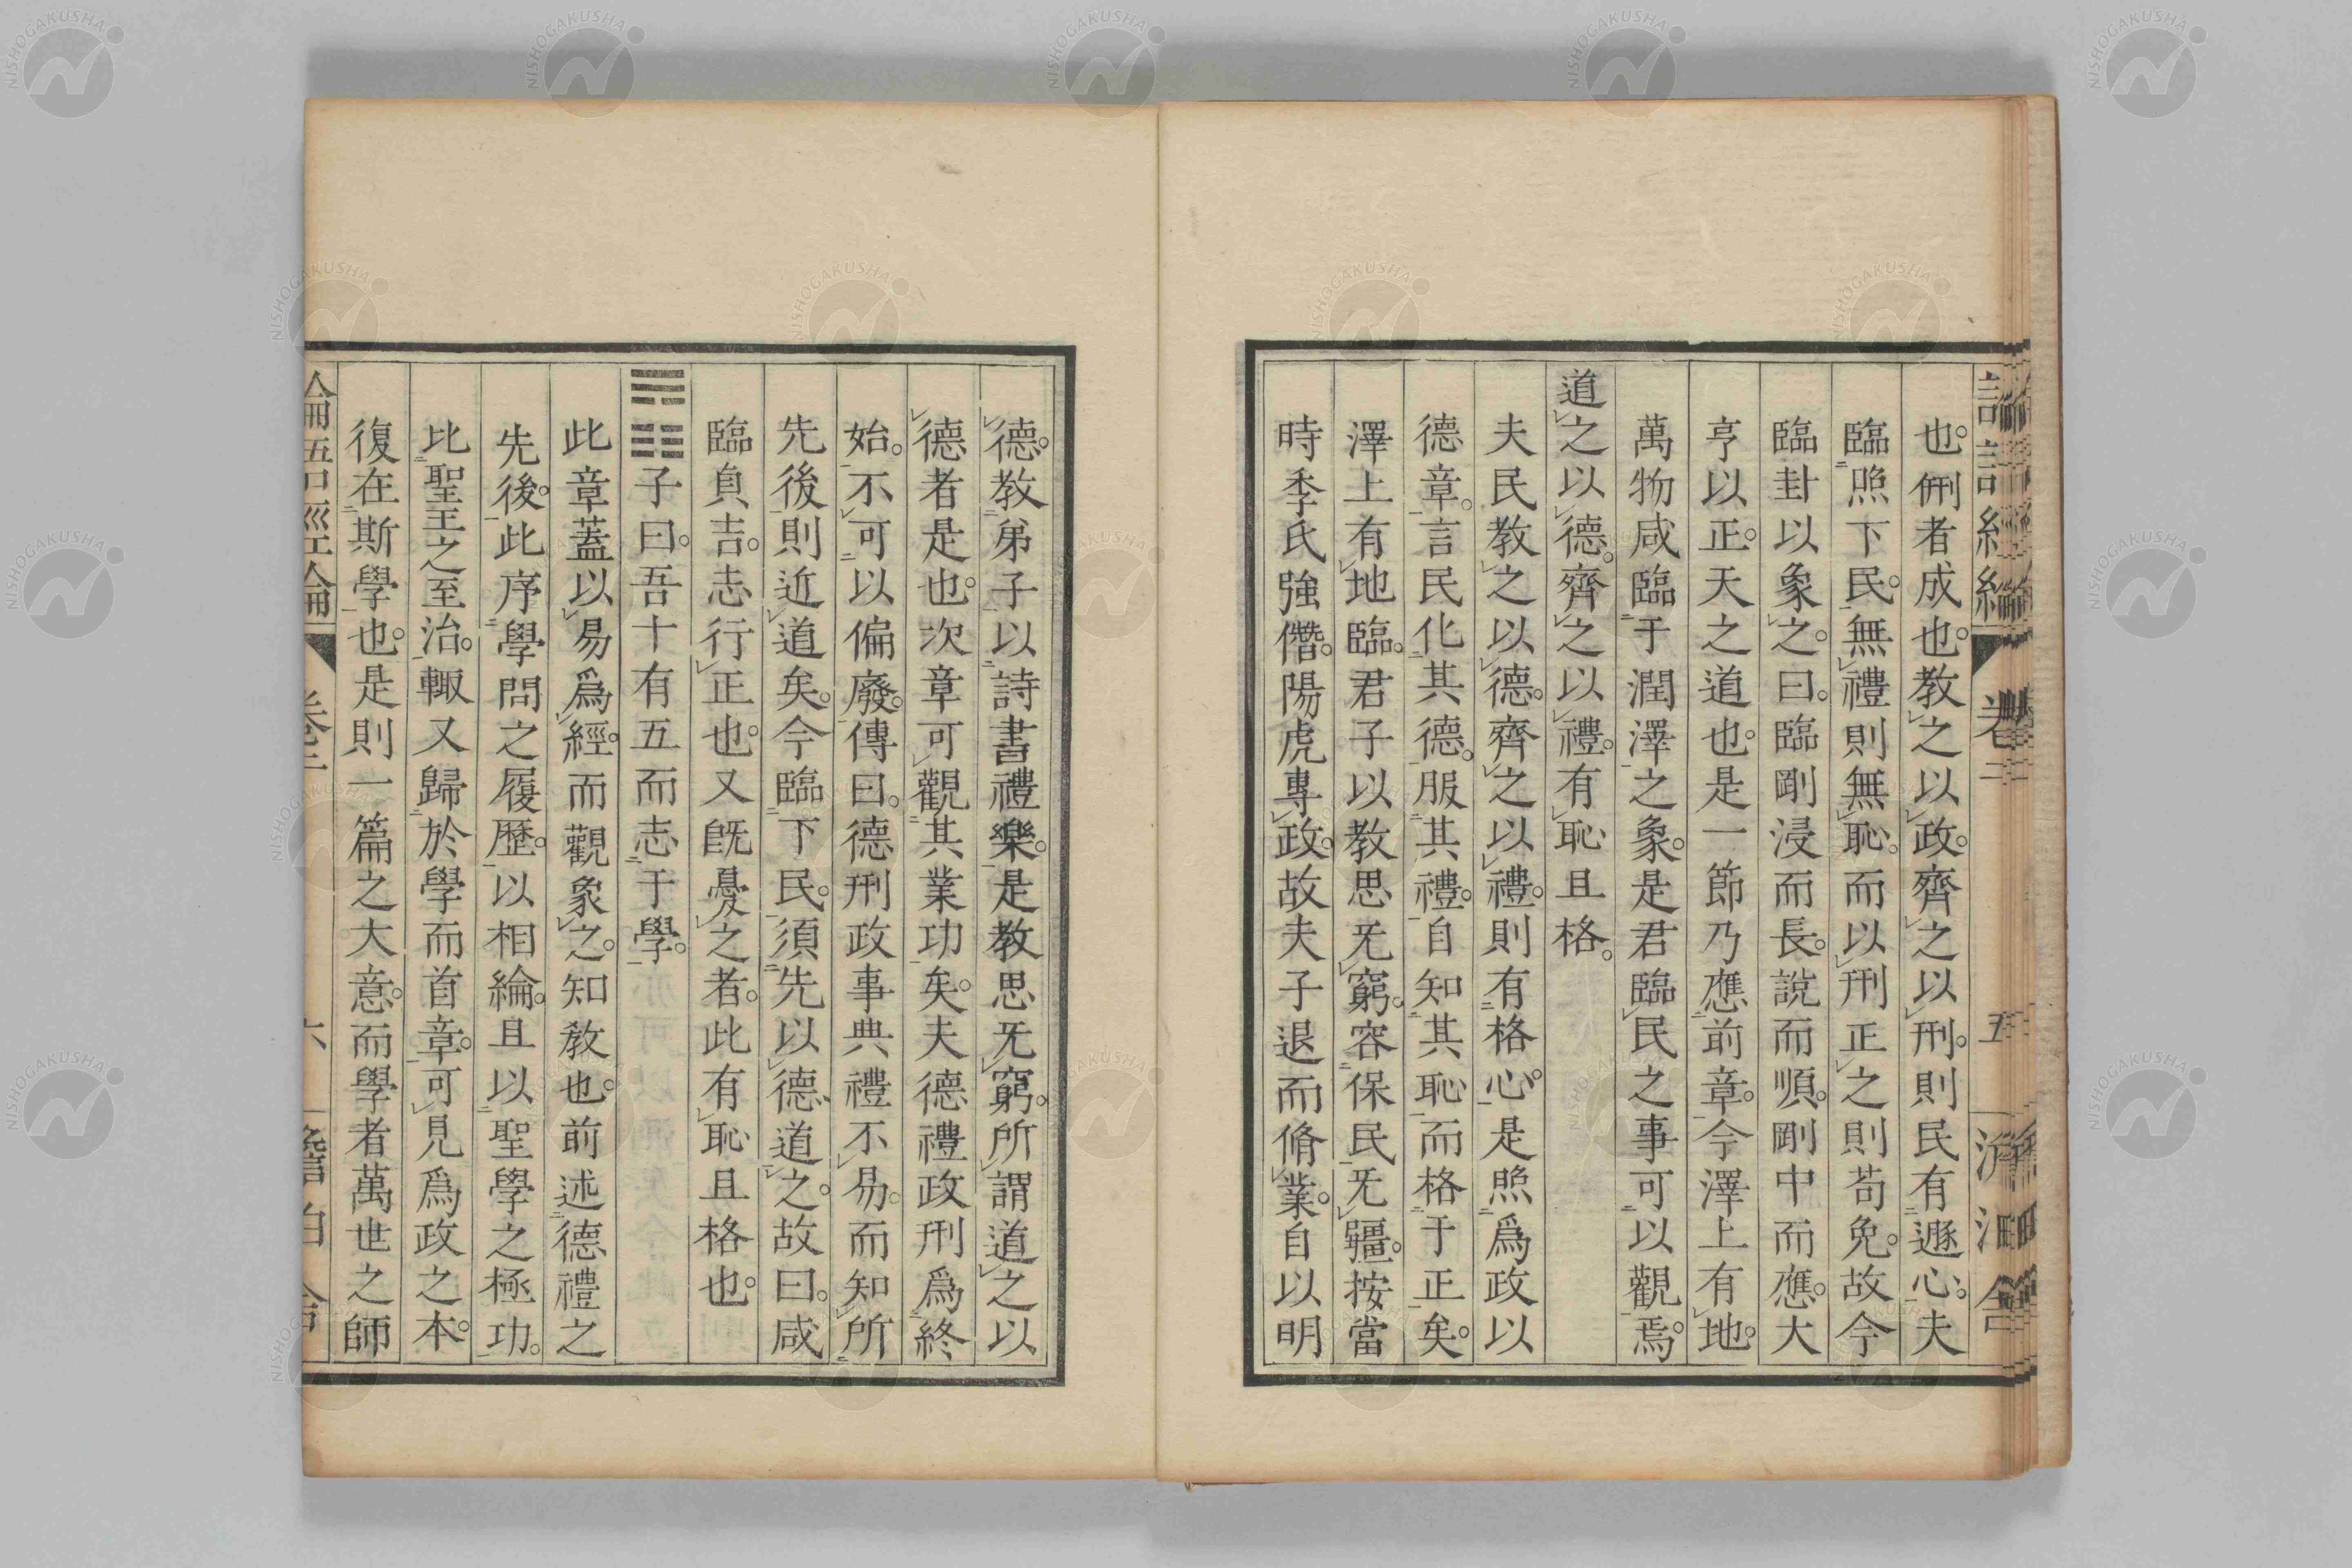 也。侀者成也。教之以政。齊之以刑。則民有遯心。夫
臨照下民。無禮則無恥。而以刑正之則苟免。故今
臨卦以象之。曰。臨剛浸而長。說而順。剛中而應。大
亨以正。天之道也。是一節乃應前章。今澤上有地。
萬物咸臨于潤澤之象。是君臨民之事可以觀焉。
道之以德。齊之以禮。有恥且格。
夫民教之以德。齊之以禮。則有格心。是照爲政以
德章。言民化其德。服其禮。自知其恥而格于正矣。
澤上有地臨。君子以教思无窮。容保民无疆。按當
時季氏強僭。陽虎專政。故夫子退而脩業。自以明
德。教弟子以詩書禮樂。是教思无窮。所謂道之以
德者是也。次章可觀其業功矣。夫德禮政刑爲終
始。不可以偏廢。傳曰。德刑政事典禮不易。而知所
先後則近道矣。今臨下民。須先以德道之。故曰。咸
臨貞吉。志行正也。又旣憂之者。此有恥且格也。
子曰。吾十有五而志于學。
此章蓋以易爲經。而觀象之。知教也。前述德禮之
先後。此序學問之履歷。以相綸。且以聖學之極功。
比聖王之至治。輙又歸於學而首章。可見爲政之本。
復在斯學也。是則一篇之大意。而學者萬世之師
論語經綸 卷二 六